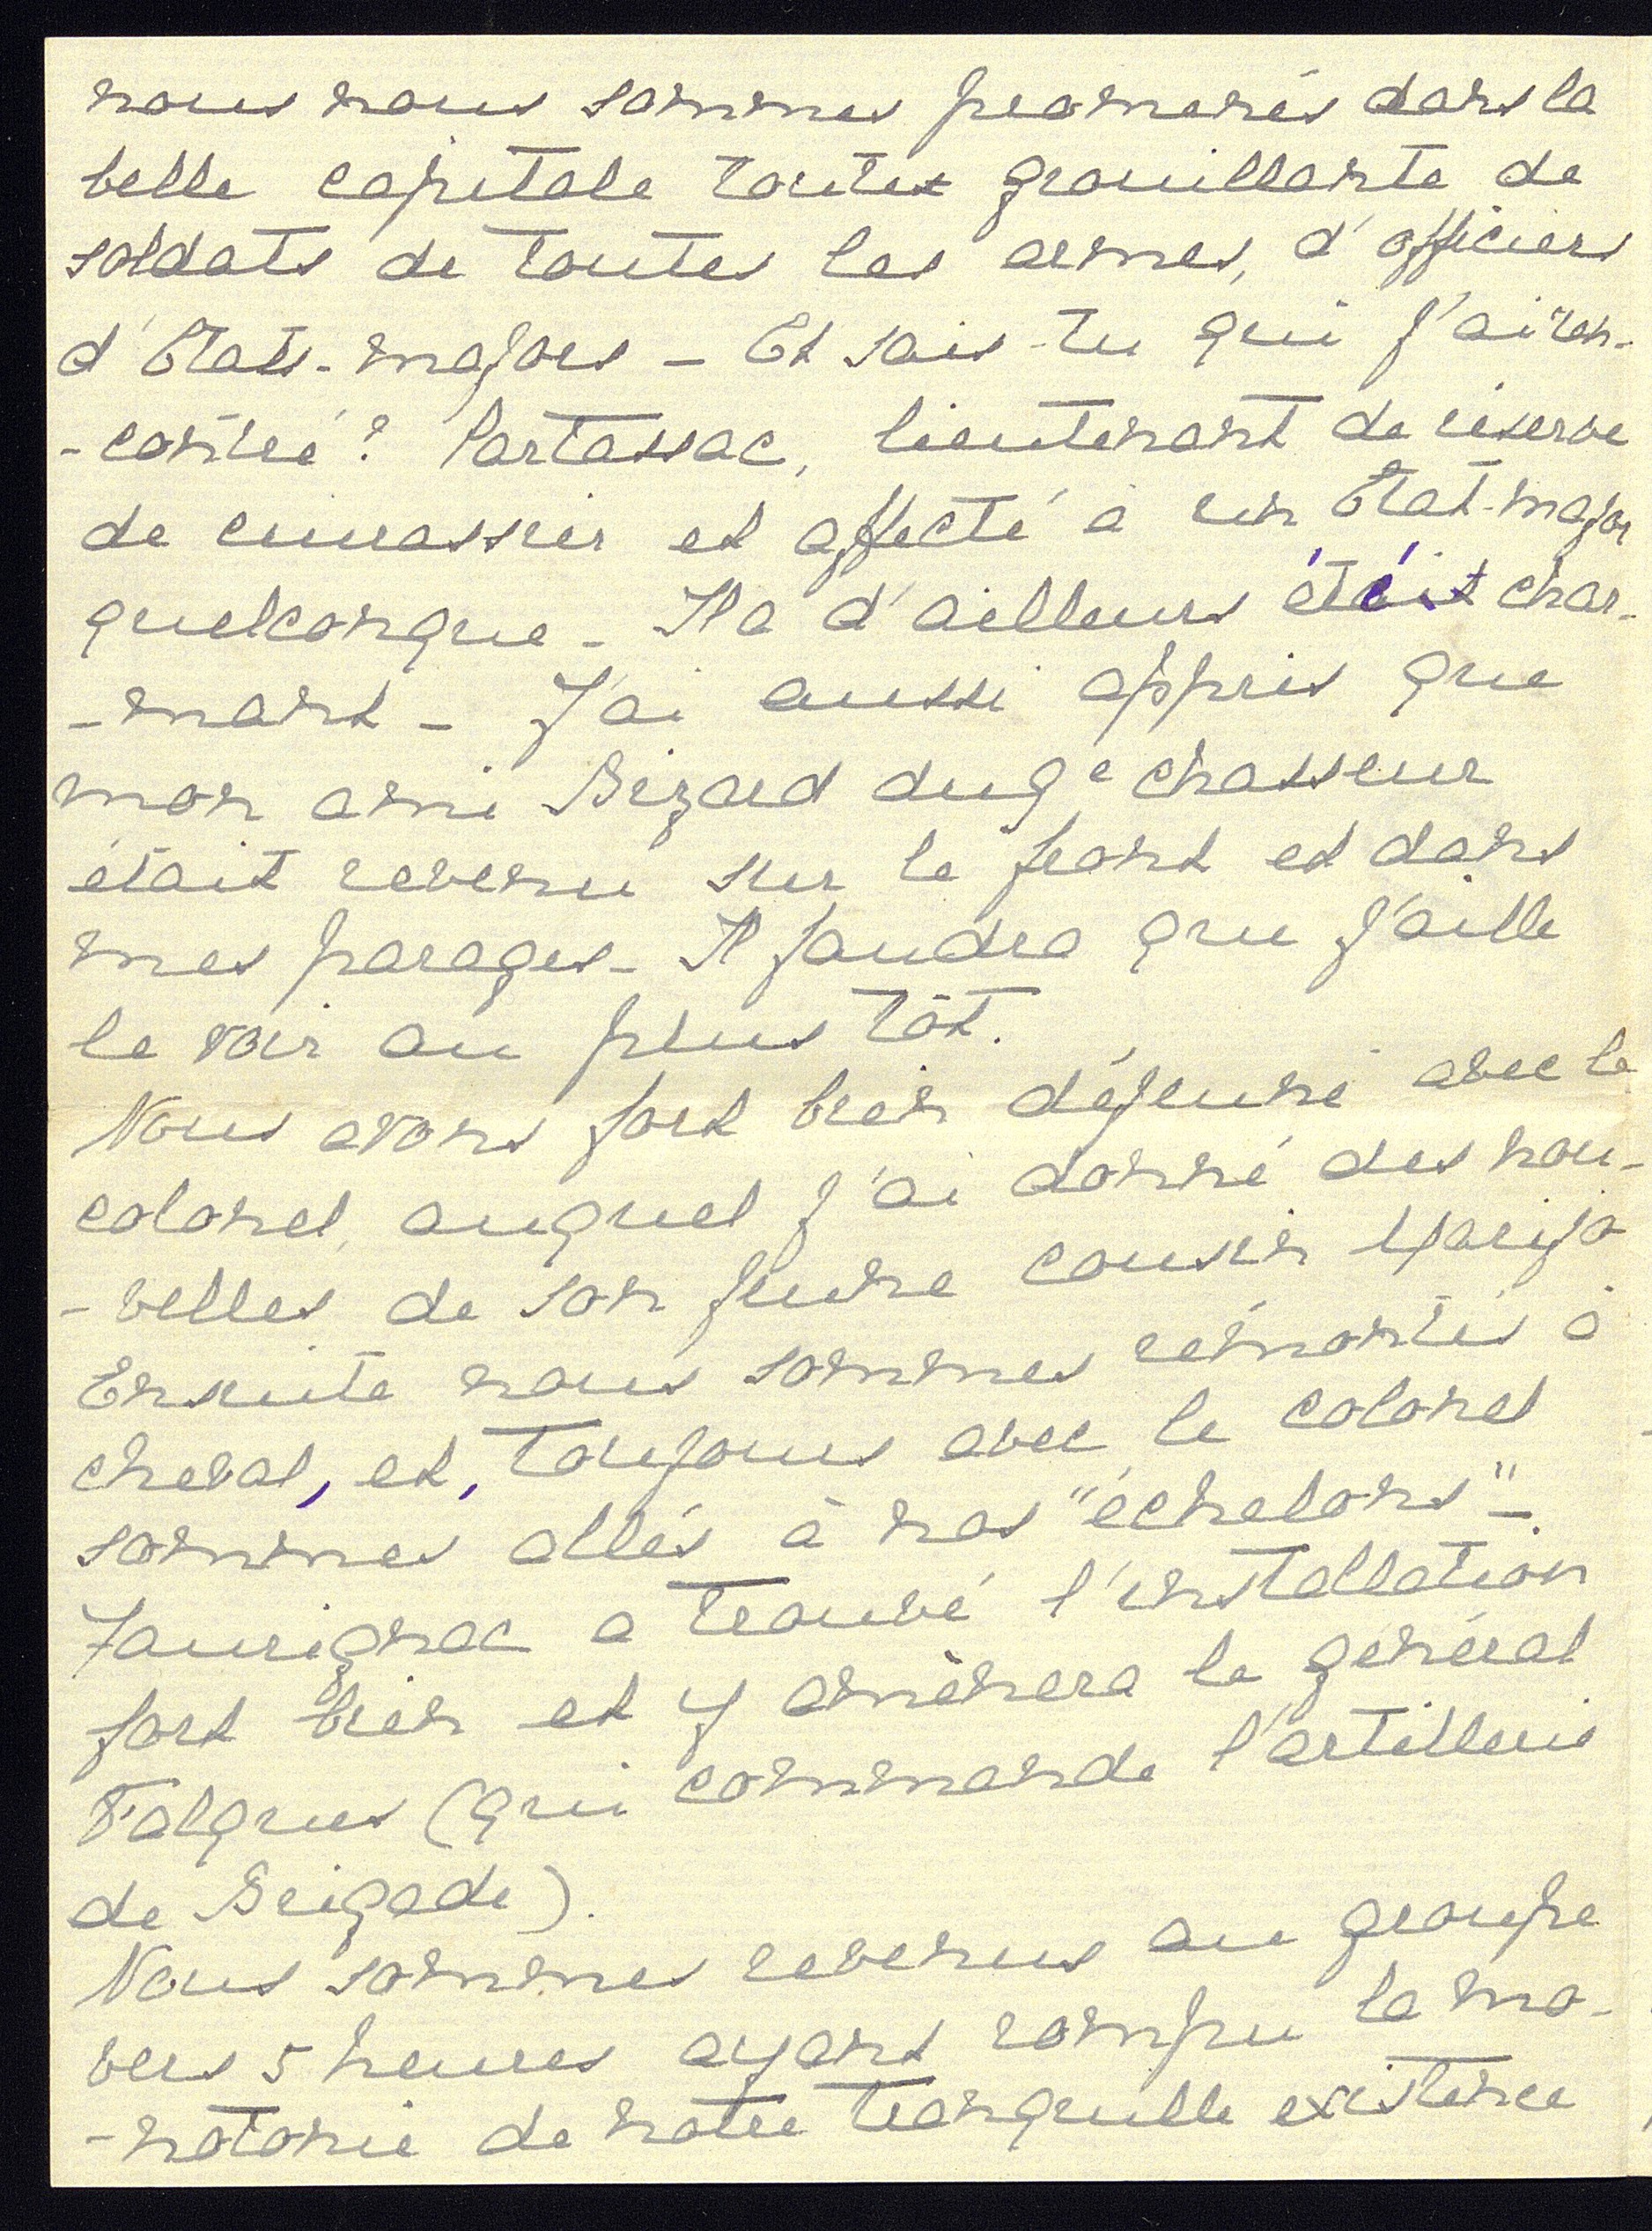 nous nous sommes promenés dans la
belle capitale toute grouillante de
soldats de toutes les armes, d'officiers
d'États-majors - Et sais-tu qui j'ai ren-
-contré ? Partassac, lieutenant de réserve
de cuirassier et affecté à un État-major
quelconque - Il a d'ailleurs été char-
-mant - J'ai aussi appris que
mon ami Bizard du 9e chasseur
était revenu sur le front et dans
mes parages - Il faudra que j'aille
le voir au plus tôt.
Nous avons fort bien déjeuné avec le
colonel, auquel j'ai donné des nou-
-velles de son jeune cousin
Ensuite nous sommes remontés à
cheval, et, toujours avec le colonel
sommes allés à nos "échelons" -
Jaurignac a trouvé l'installation
fort bien et y amènera le général
Falques (qui commande l'artillerie
de Brigade).
Nous sommes revenus au groupe
vers 5 heures ayant rompu la mo-
-notonie de notre tranquille existence